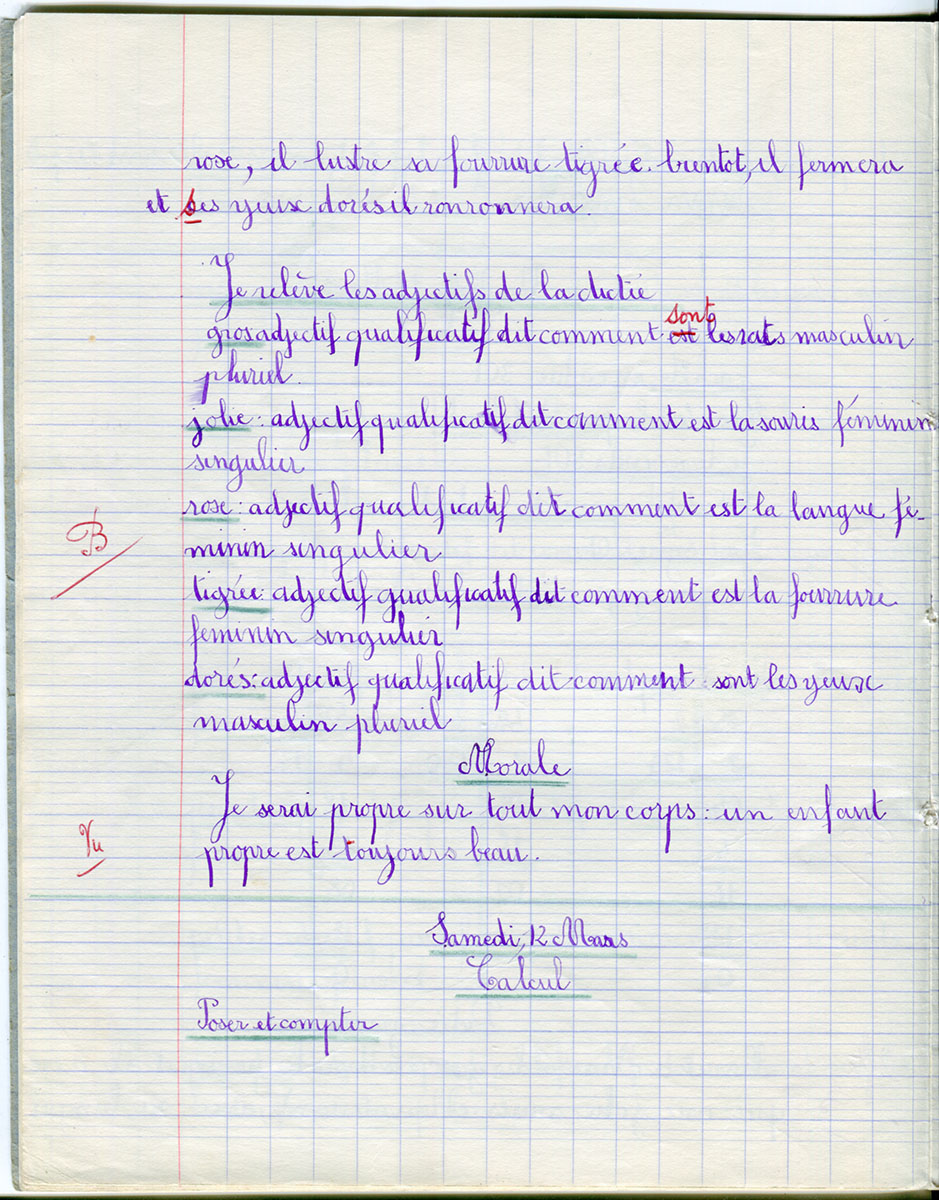 rose, il lustre sa fourrure tigrée. bientot, il fermera
et ses yeux dorés il ronronnera.
Je relève les adjectifs de la dictée
gros adjectif qualificatif dit comment est sont les rats masculin
pluriel.
jolie : adjectif qualificatif dit comment est la souris féminin
singulier
rose : adjectif qualificatif dit comment est la langue fé-
B
minin singulier
tigrée : adjectif qualificatif dit comment est la fourrure
feminin singulier
dorés : adjectif qualificatif dit comment sont les yeux
masculin pluriel
Morale
Je serai propre sur tout mon corps : un enfant
Vu
propre est toujours beau.
Samedi, 12 Mars
Calcul
Poser et compter